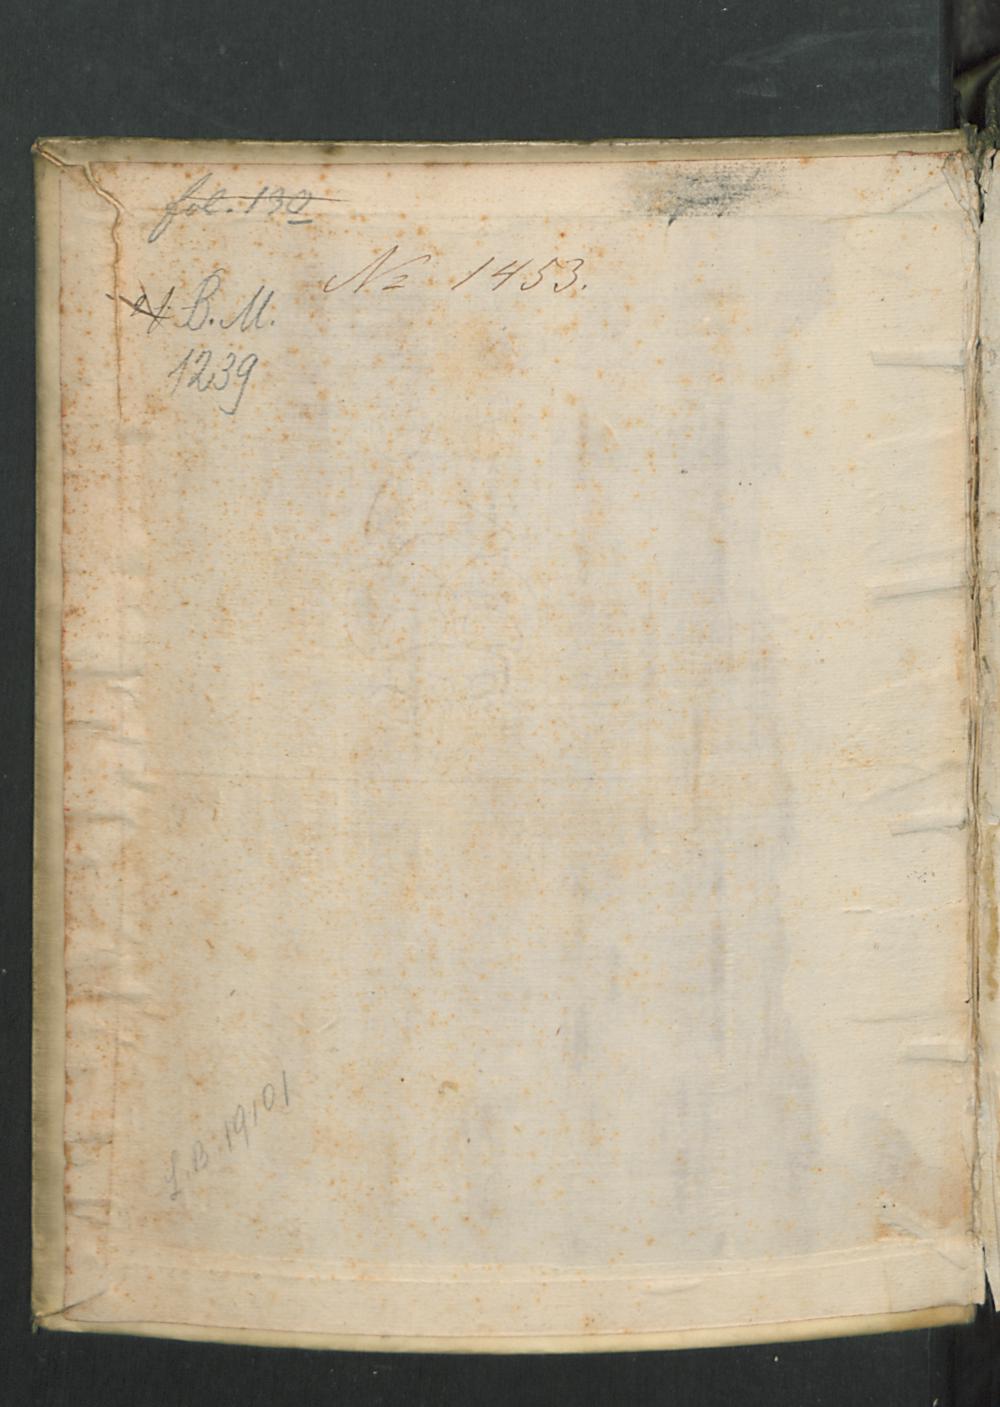 fol. 130
№ 1453.
N. B. M.
1239
L.B. 19101